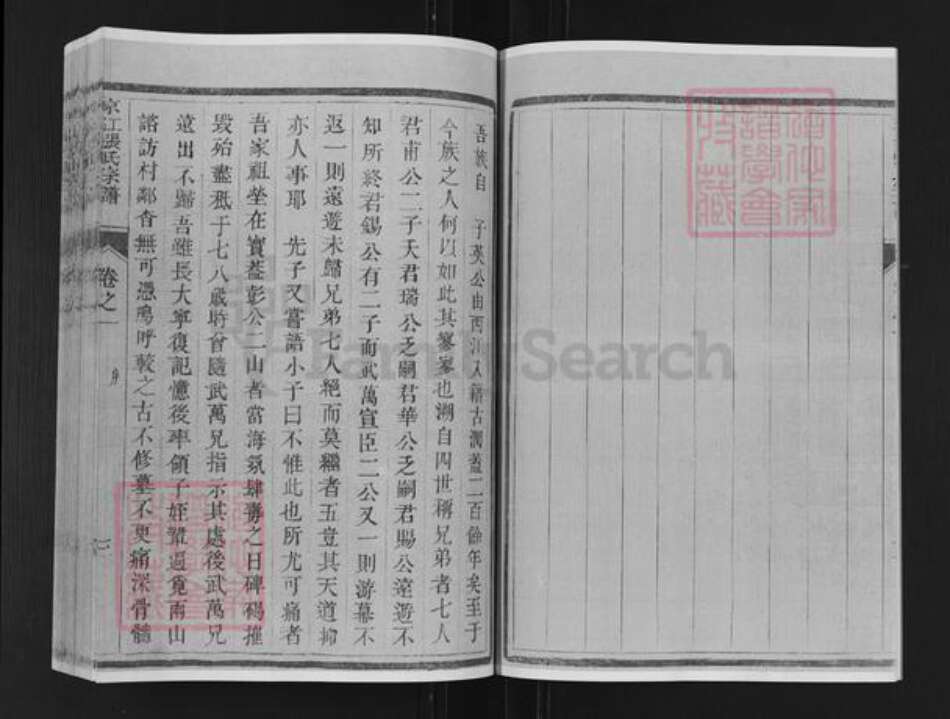 吾族自　子英公由西江入籍古潤蓋二百餘年矣至于
今族之人何以如此其寥寥也溯自四世稱兄弟者七人
君甫公二子夭君瑞公乏嗣君華公乏嗣君賜公遠遊不
知所終君錫公有二子而武萬宣臣二公又一則游幕不
返一則遠遊未歸兄弟七人絕而莫繼者五豈其天道抑
亦人事耶　先子又嘗語小子曰不惟此也所尤可痛者
吾家祖坐在寶蓋彭公二山者當海氛肆毒之日碑碣摧
毀殆盡秪于七八歲時曾隨武萬兄指示其處後武萬兄
遠出不歸吾雖長大寧復記憶後率領子姪輩遍覓兩山
諮訪村鄰杳無可憑嗚呼較之古不修墓不更痛深骨髓
京江張氏宗譜
卷之一
序
FamilySearch